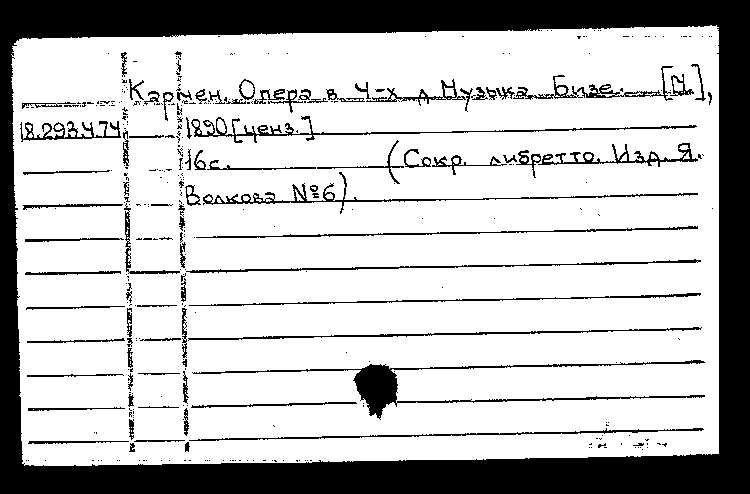 Кармен. Опера в 4-х д Музыка Бизе. [М],
18.293.4.74 1890[ценз.].
16с. (Сокр. либретто. Изд. Я.
Волкова №6).